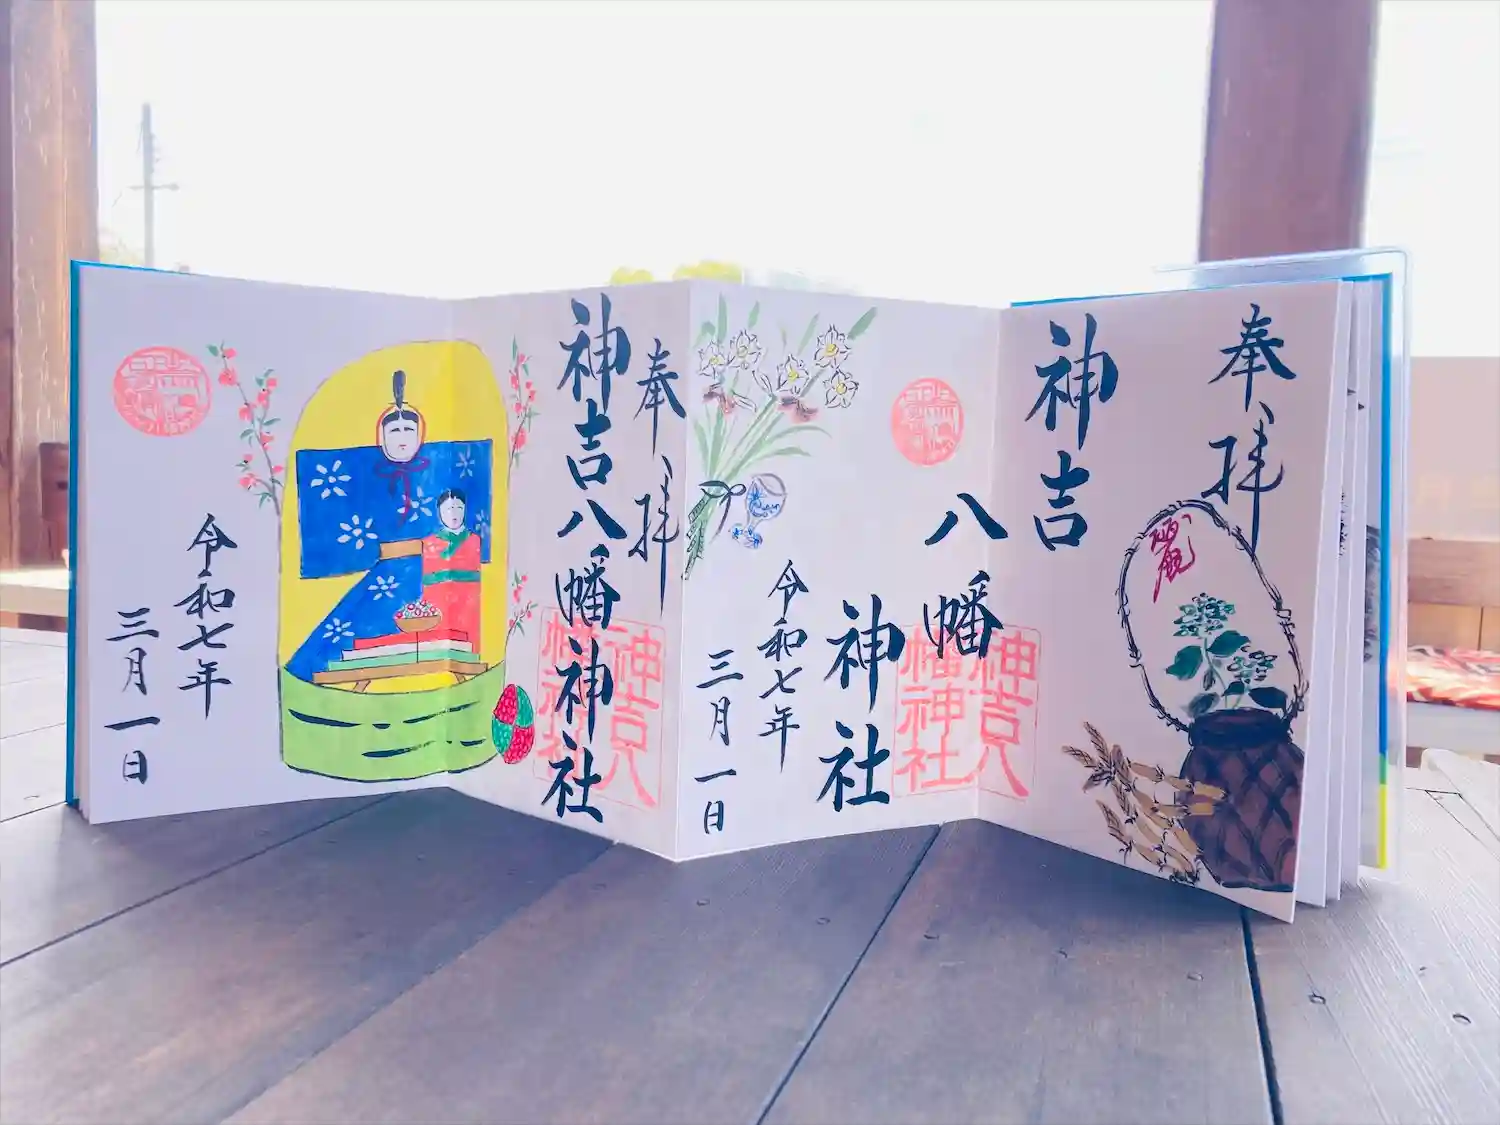 奉拝
神吉
八幡
神社
令和七年
三月一日
神吉八
幡神社
奉拝
神吉八幡神社
令和七年
三月一日
神吉八
幡神社